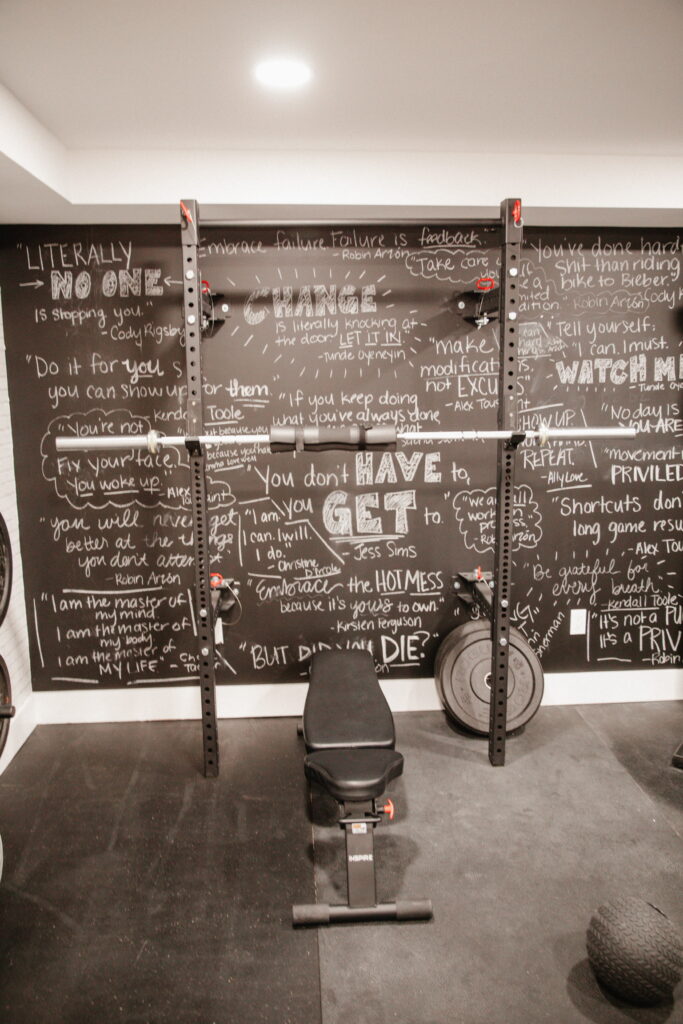 "LITERALLY
→ NO ONE ←
is stopping you."
- Cody Rigsby
"Do it for you s
you can show up for them
Kend Toole
"You're not
Fix your face.
You woke up.
- Alex
"you will never get
better at the things
you don't
- Robin Arzón
"I am the master of
my mind
I am the master of
my body
I am the master of
MY LIFE" - Ch
Embrace failure. Failure is feedback."
- Robin Arzón
CHANGE
is literally knocking at
the door LET IT IN."
- Tunde Oyeneyin
"If you keep doing
what you've always done
"You don't HAVE to,
you GET to."
- Jess Sims
"I am.
I can. I will.
I do."
- Christine
"Embrace the HOT MESS
because it's yours to own."
- Kirsten Ferguson
"BUT DID YOU DIE?"
"Take care
"make
modificat
not EXCU
- Alex Tou
HOW UP.
REPEAT."
- Ally Love
"we a
"You've done hard
shit than riding
bike to Bieber."
- Robin Arzón
Cody R
Tell yourself:
"I can. I must.
WATCH ME
- Tunde Oye
"No day is
YOU ARE
"movement
PRIVILE
"Shortcuts don
long game resu
- Alex Tou
"Be grateful for
every breath"
- Kendall Toole
"It's not a PU
it's a PRIV
- Robin
INSPIRE